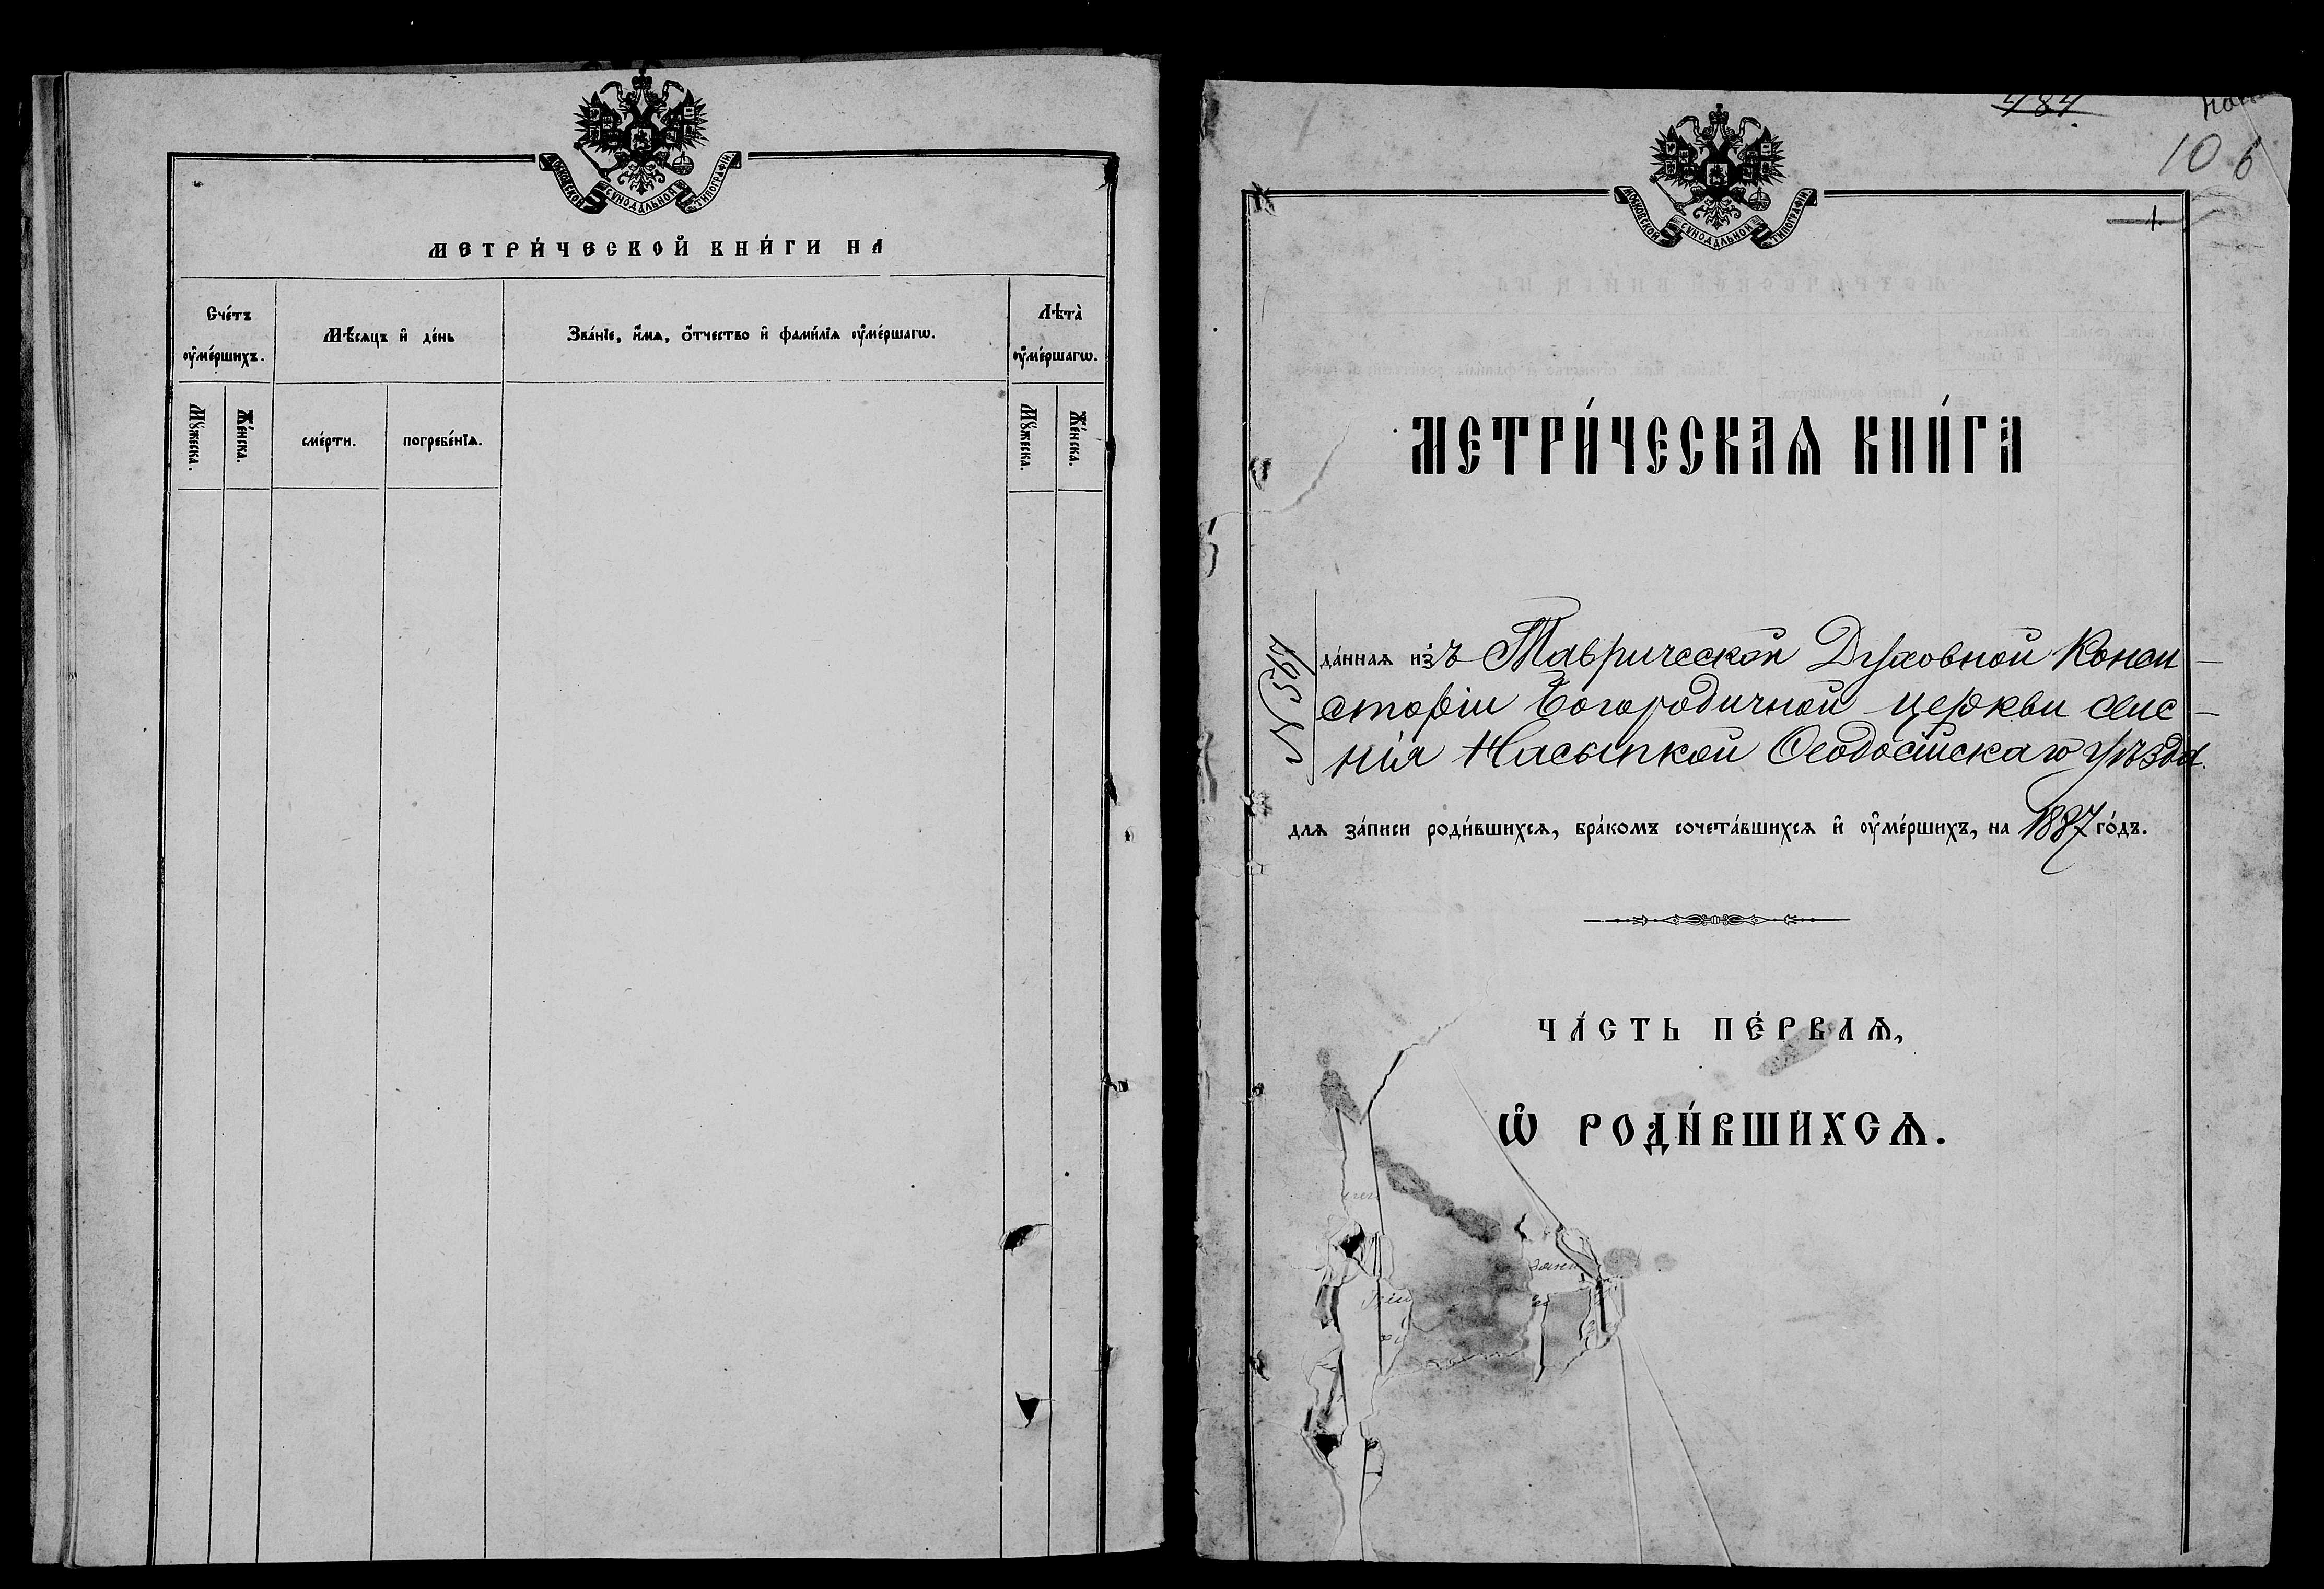 МОСКОВСКОЙ СѴНОДАЛЬНОЙ ТИПОГРАФІИ
МЕТРИ́ЧЕСКОЙ КНИ́ГИ НА
Сче́тъ ᲂу҆ме́ршихъ.
Мѣ́сяцъ и҆ де́нь
Зва́нїе, и҆́мѧ, ѻ҆́тчество и҆ фами́лїѧ ᲂу҆ме́ршагѡ.
Лѣта̀ ᲂу҆ме́ршагѡ.
Мꙋ́жеска.
Же́нска.
сме́рти.
погребе́нїѧ.
Мꙋ́жеска.
Же́нска.
484
10 6
1
МОСКОВСКОЙ СѴНОДАЛЬНОЙ ТИПОГРАФІИ
МЕТРИ́ЧЕСКАѦ КНИ́ГА
да́ннаѧ и҆зъ Таврической Духовной Конси-
сторіи Богородичной церкви селе-
нія Насыпкой Ѳеодосійскаго уѣзда
длѧ за́писи роди́вшихсѧ, бра́комъ сочета́вшихсѧ и҆ ᲂу҆ме́ршихъ, на 1887 го́дъ.
ЧА́СТЬ ПЕ́РВАѦ,
Ѡ҆ РОДИ́ВШИХСѦ.